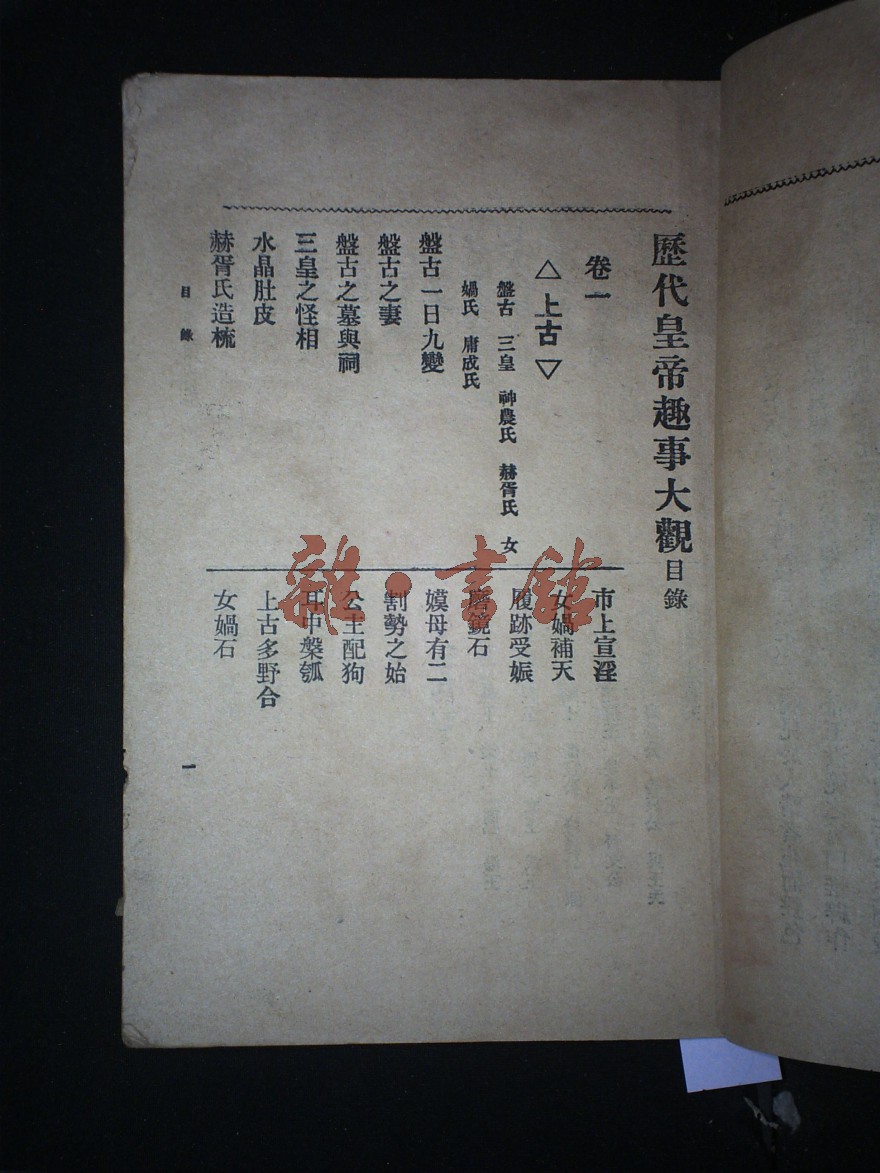 歷代皇帝趣事大觀目錄
卷一
△上古▽
盤古 三皇 神農氏 赫胥氏 女
媧氏 庸成氏
盤古一日九變
盤古之妻
盤古之墓與祠
三皇之怪相
水晶肚皮
赫胥氏造梳
市上宣淫
女媧補天
履跡受娠
磨鏡石
嫫母有二
割勢之始
公主配狗
耳中槃瓠
上古多野合
女媧石
目錄
一
雜·書館